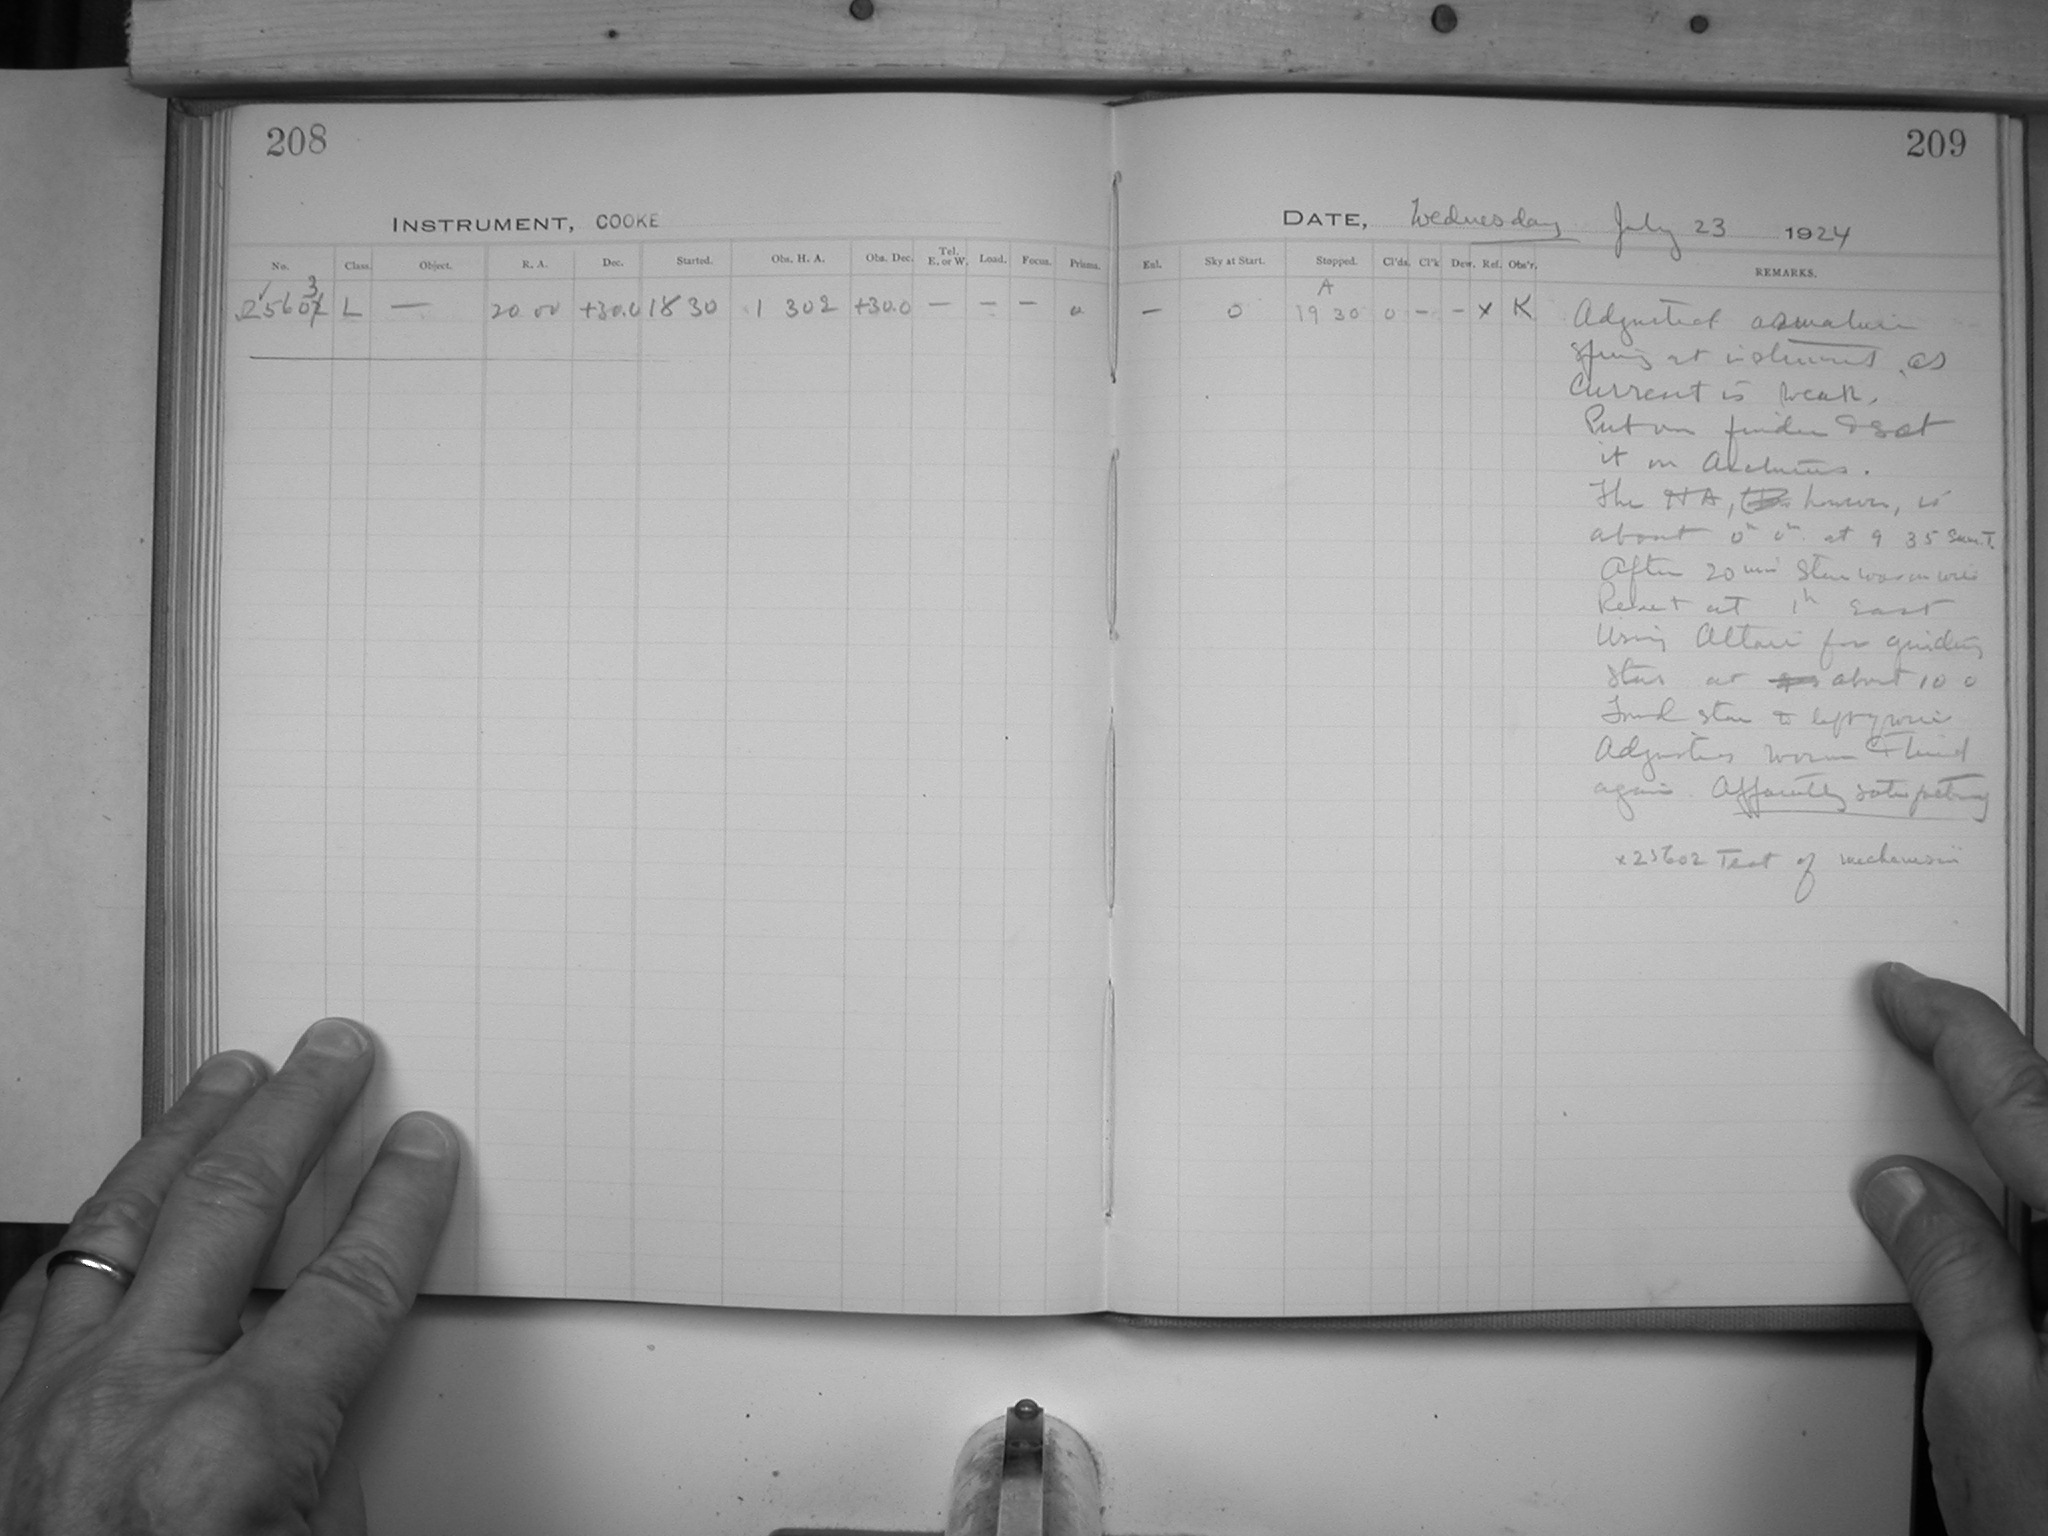 208
209
INSTRUMENT, COOKE
DATE, Wednesday July 23 1924
No. Class. Object. R. A. Dec. Started. Obs. H. A. Obs. Dec. Tel. E. or W. Load. Focus. Prisms.
Enl. Sky at Start. Stopped. Cl'ds. Cl'k Dew. Ref. Obs'r. REMARKS.
25603 L — 20 00 +30.0 18 30 1 30 2 +30.0 — — — 0
— 0 A 19 30 0 — — x K
Adjusted armature
spring at instrument as
current is weak.
Put on finder & set
it on Arcturus.
The HA, however, is
about 0h 0m at 9 35 Sum. T.
After 20 min Star was on wire
Reset at 1h East
Using Altair for guiding
star at about 10 0
Found star to left of wire
Adjusting worm & tried
again. Apparently satisfactory
x 25602 Test of mechanism